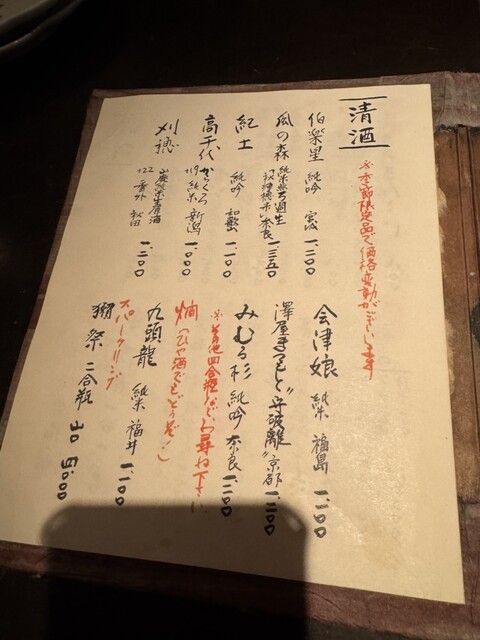 清酒
※季節限定品で価格変動がございます
伯楽星 純吟 宮城 一、二〇〇
風の森 純米 奈良 一、三五〇
紀土 純吟 和歌山 一、一〇〇
高千代 からくち +19 純米 新潟 一、一〇〇
刈穂 山廃純米生原酒 +22 番外 秋田 一、二〇〇
会津娘 純米 福島 一、一〇〇
澤屋まつもと "守破離" 京都 一、一〇〇
みむろ杉 純吟 奈良 一、二〇〇
※その他四合瓶などお尋ね下さい
燗（ひや酒でもどうぞ！）
九頭龍 純米 福井 一、一〇〇
スパークリング
獺祭 二合瓶 山口